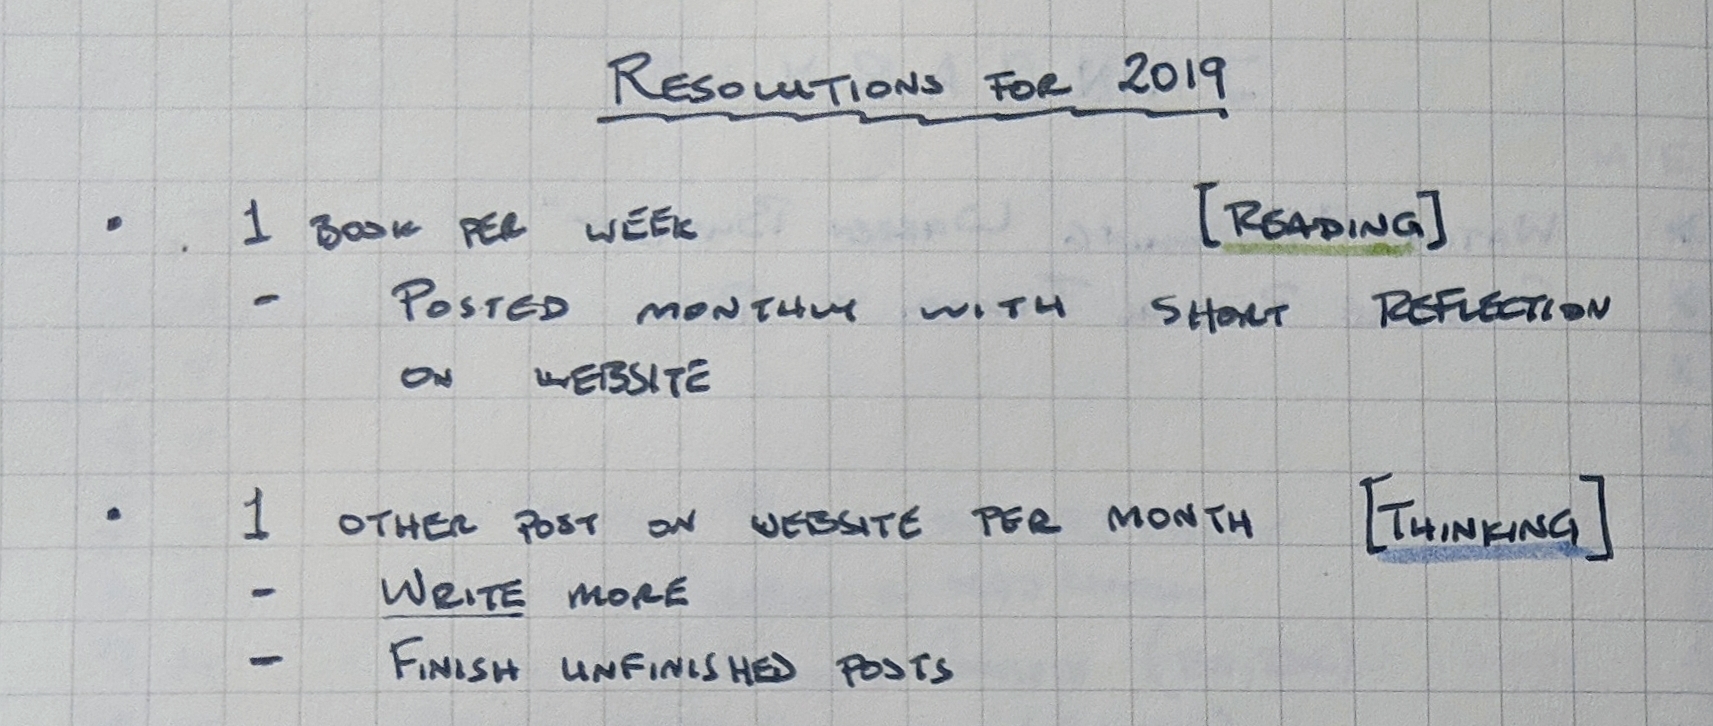 RESOLUTIONS FOR 2019
• 1 BOOK PER WEEK [READING]
- POSTED MONTHLY WITH SHORT REFLECTION
ON WEBSITE
• 1 OTHER POST ON WEBSITE PER MONTH [THINKING]
- WRITE MORE
- FINISH UNFINISHED POSTS